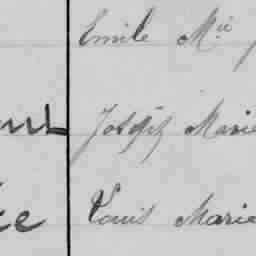 Emile Mie
Joseph Marie
Louis Marie